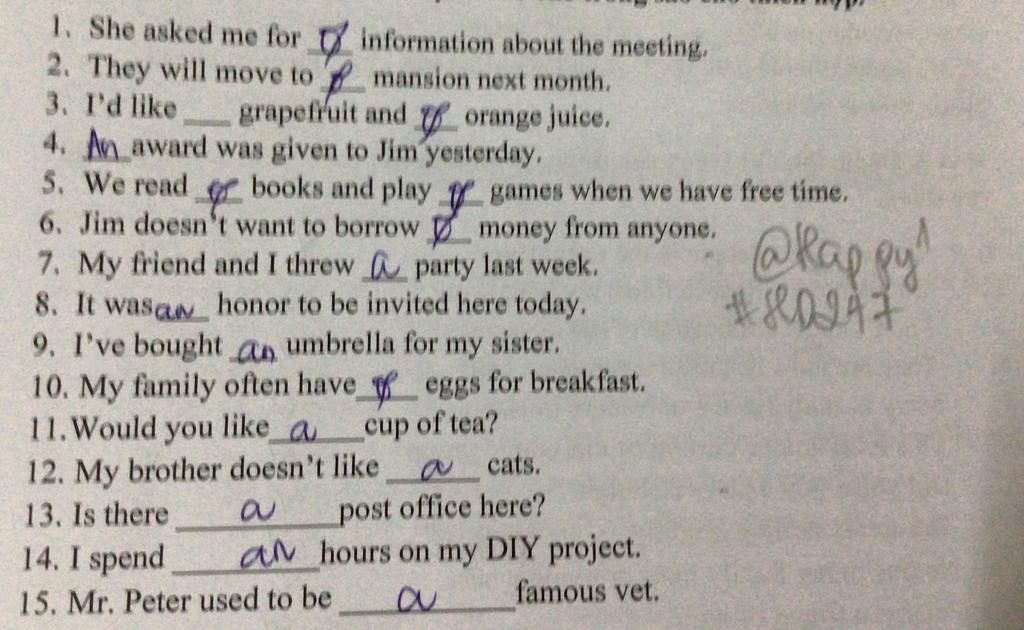 1. She asked me for Ø information about the meeting.
2. They will move to ___ mansion next month.
3. I'd like ___ grapefruit and Ø orange juice.
4. An award was given to Jim yesterday.
5. We read Ø books and play Ø games when we have free time.
6. Jim doesn't want to borrow Ø money from anyone.
7. My friend and I threw a party last week.
8. It was an honor to be invited here today.
9. I've bought an umbrella for my sister.
10. My family often have Ø eggs for breakfast.
11. Would you like a cup of tea?
12. My brother doesn't like a cats.
13. Is there a post office here?
14. I spend an hours on my DIY project.
15. Mr. Peter used to be a famous vet.
@Kappy